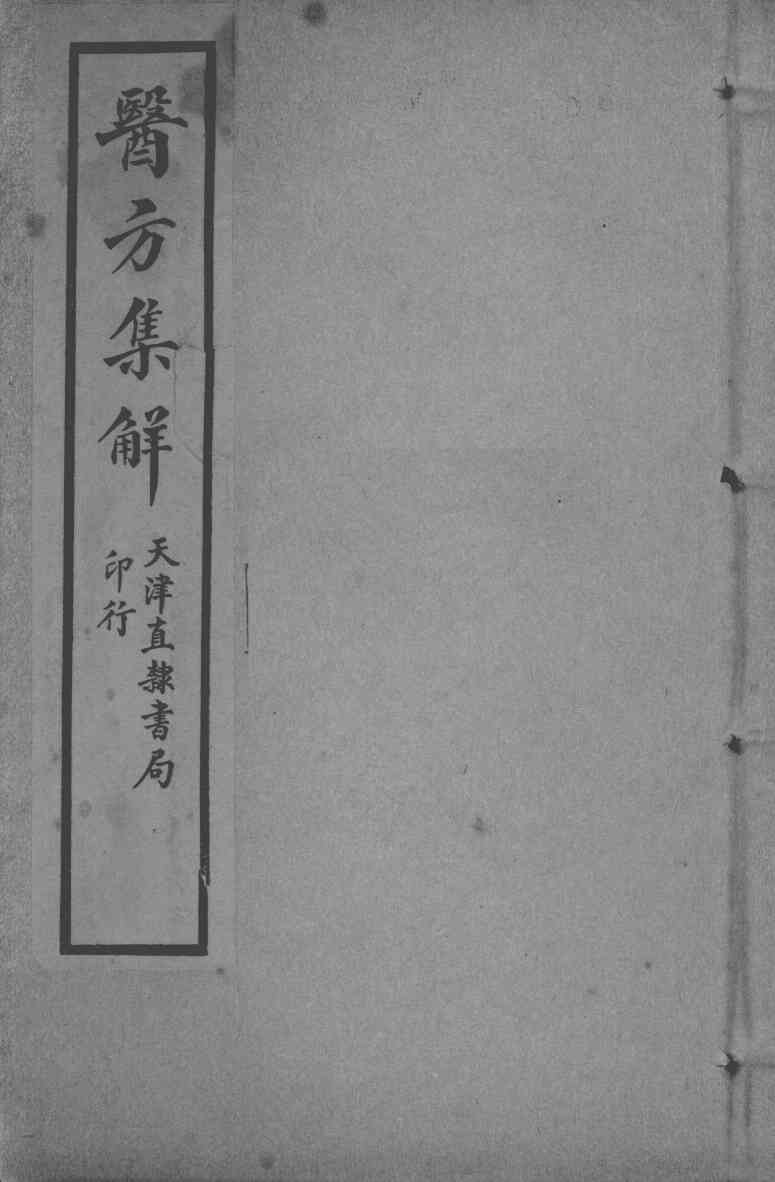 醫方集觧
天津直隸書局
印行